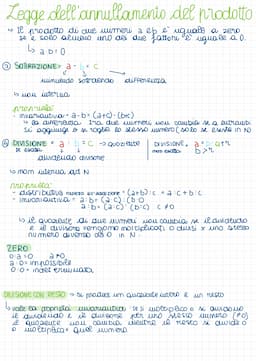 Legge dell'annullamento del prodotto
→ Il prodotto di due numeri a e b è uguale a zero
se e solo almeno uno dei due fattori è uguale a 0.
↳ a·b=0
SOTTRAZIONE → a - b = c
minuendo sottraendo differenza
↳ non interna
proprietà:
- invariantiva → a-b = (a+c)-(b+c)
↳ la differenza tra due numeri non cambia se a entrambi
si aggiunge o si toglie lo stesso numero (solo se esiste in N)
DIVISIONE → a : b = c → quoziente
DIVISIONE
dividendo divisore
↳ non interna a N
proprietà:
- distributiva rispetto = (a+b):c = a:c + b:c
- invariantiva → a:b = (a·c):(b·c)
a:b = (a:c):(b:c) c≠0
↳ il quoziente di due numeri non cambia se il dividendo
e il divisore vengono moltiplicati o divisi x uno stesso
numero diverso da 0 in N.
ZERO
0:a=0 a≠0
a:0= impossibile
0:0= indeterminata
DIVISIONE CON RESTO → si produce un quoziente intero e un resto
↳ vale la proprietà invariantiva → se si moltiplica o si dividono
il dividendo e il divisore per uno stesso numero (≠0)
il quoziente non cambia mentre il resto si divide o
si moltiplica quel numero